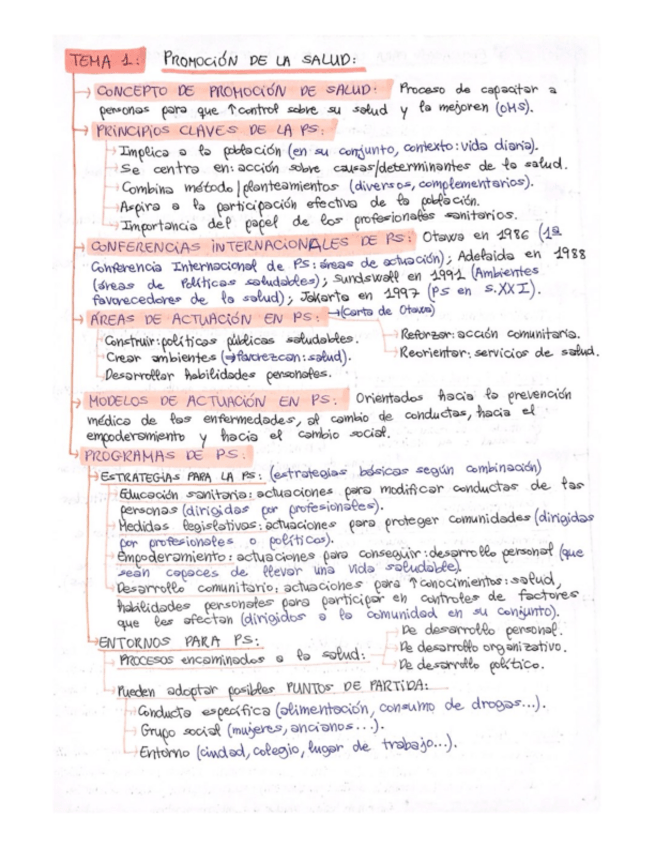 TEMA 1: PROMOCIÓN DE LA SALUD:
CONCEPTO DE PROMOCIÓN DE SALUD: Proceso de capacitar a
personas para que ↑control sobre su salud y la mejoren (OMS).
PRINCIPIOS CLAVES DE LA PS:
Implica a la población (en su conjunto, contexto: vida diaria).
Se centra en: acción sobre causas/determinantes de la salud.
Combina método/planteamientos (diversos, complementarios).
Aspira a la participación efectiva de la población.
Importancia del papel de los profesionales sanitarios.
CONFERENCIAS INTERNACIONALES DE PS: Otawa en 1986 (1ª
Conferencia Internacional de PS: áreas de actuación); Adelaida en 1988
(áreas de políticas saludables); Sundswall en 1991 (Ambientes
favorecedores de la salud); Jakarta en 1997 (PS en S.XXI).
ÁREAS DE ACTUACIÓN EN PS: →(Carta de Otawa)
Construir: políticas públicas saludables.
Crear ambientes (→favorezcan: salud).
Desarrollar habilidades personales.
Reforzar: acción comunitaria.
Reorientar: servicios de salud.
MODELOS DE ACTUACIÓN EN PS: Orientados hacia la prevención
médica de las enfermedades, al cambio de conductas, hacia el
empoderamiento y hacia el cambio social.
PROGRAMAS DE PS:
ESTRATEGIAS PARA LA PS: (estrategias básicas según combinación)
Educación sanitaria: actuaciones para modificar conductas de las
personas (dirigidas por profesionales).
Medidas legislativas: actuaciones para proteger comunidades (dirigidas
por profesionales o políticos).
Empoderamiento: actuaciones para conseguir: desarrollo personal (que
sean capaces de llevar una vida saludable).
Desarrollo comunitario: actuaciones para ↑conocimientos: salud,
habilidades personales para participar en controles de factores
que les afectan (dirigidos a la comunidad en su conjunto).
ENTORNOS PARA PS:
PROCESOS encaminados a la salud:
De desarrollo personal.
De desarrollo organizativo.
De desarrollo político.
Pueden adoptar posibles PUNTOS DE PARTIDA:
Conducta específica (alimentación, consumo de drogas...).
Grupo social (mujeres, ancianos...).
Entorno (ciudad, colegio, lugar de trabajo...).